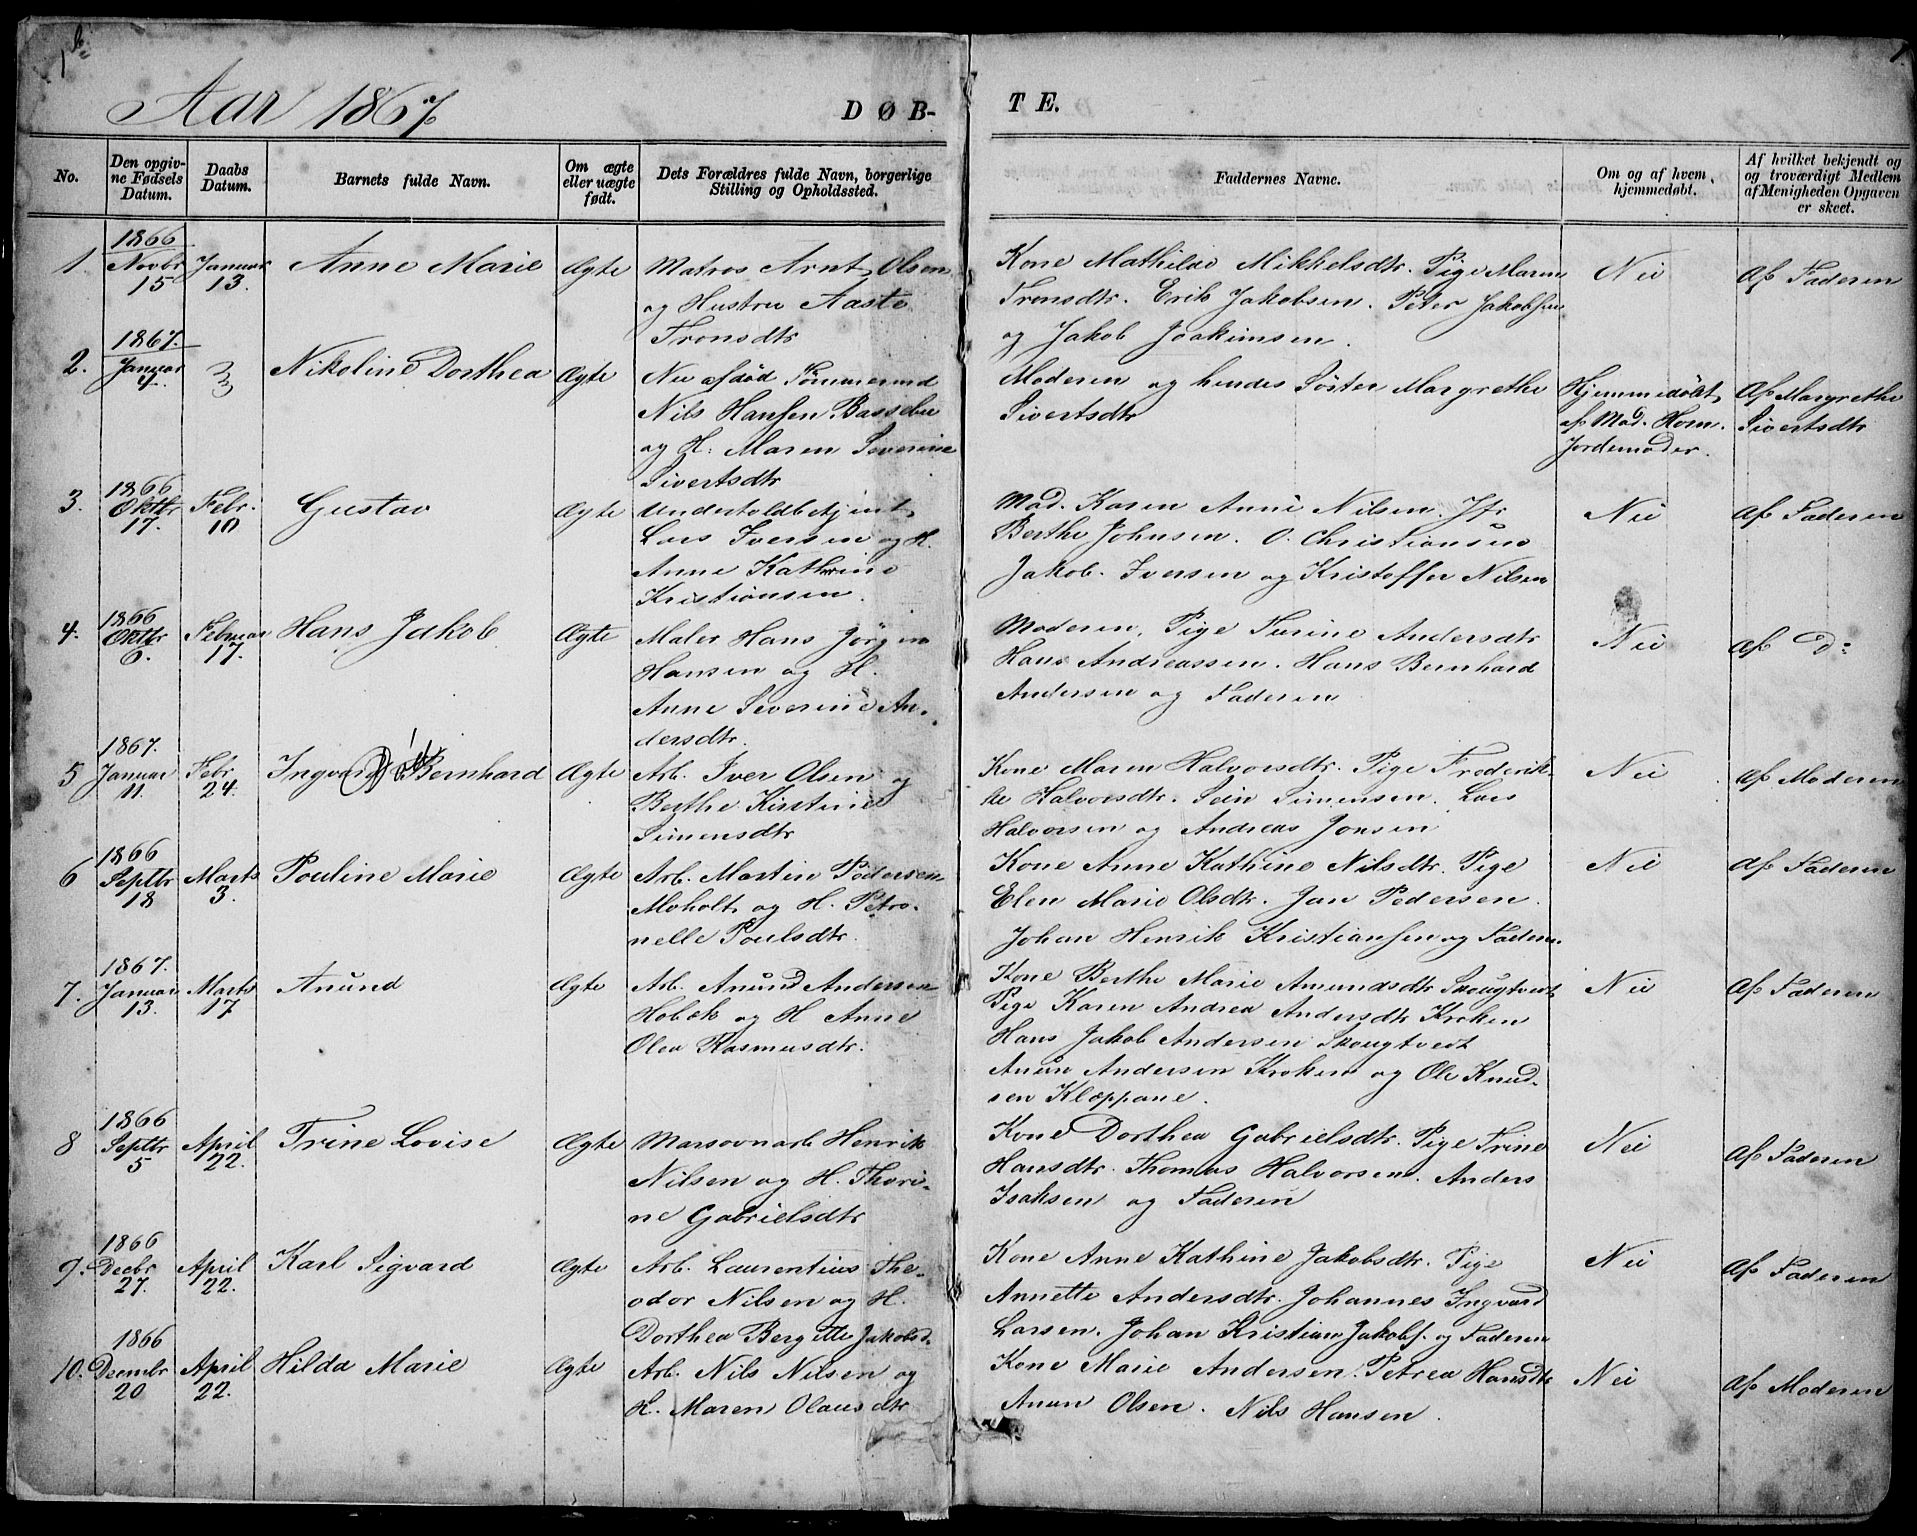 1b
1
Aar 1867
DØB-
TE.
No.
Den opgiv-
ne Fødsels
Datum.
Daabs
Datum.
Barnets fulde Navn.
Om ægte
eller uægte
født.
Dets Forældres fulde Navn, borgerlige
Stilling og Opholdssted.
Faddernes Navne.
Om og af hvem
hjemmedøbt.
Af hvilket bekjendt og
og troværdigt Medlem
af Menigheden Opgaven
er skeet.
1.
1866
Novbr
15
Januar
13.
Anne Marie
Ægte
Matros Arnt Olsen
og Hustru Aaste
Tronsdtr
Kone Mathilde Mikkelsdtr. Pige Maren
Tronsdtr. Erik Jakobsen. Peter Jakobsen
og Jakob Joakimsen.
Nei
Af Faderen
2.
1867.
Januar
4.
Nikoline Dorthea
Ægte
Nu afdød Tømmermd
Nils Hansen Bassebu
og H. Maren Severine
Sivertsdtr
Moderen og hendes Søster Margrethe
Sivertsdtr
Hjemmedøbt
af Mad. Horn.
Jordemoder.
Af Margrethe
Sivertsdtr
3.
1866
Oktbr
17.
Febr.
10
Gustav
Ægte
Undertoldbetjent
Lars Iversen og H.
Anne Kathrine
Kristiansen.
Mad. Karen Anne Nilsen. Jfr
Berthe Johnsen. O. Christiansen
Jakob Iversen og Kristoffer Nilsen
Nei
Af Faderen
4.
1866
Oktbr
6.
Februar
17.
Hans Jakob
Ægte
Maler Hans Jörgen
Hansen og H.
Anne Severine An-
dersdtr.
Moderen, Pige Turine Andersdtr
Hans Andreassen. Hans Bernhard
Andersen og Faderen
Nei
af Do
5
1867.
Januar
11.
Febr
24.
Ingvard Bernhard
Ægte
Arb. Iver Olsen og
Berthe Kirstine
Simensdtr
Kone Maren Halvorsdtr. Pige Frederik-
ke Halvorsdtr. Sein Simensen. Lars
Halvorsen og Andreas Jonsen
Nei
Af Moderen
6
1866
Septbr
18
Marts
3.
Pouline Marie
Ægte
Arb. Martin Pedersen
Moholt og H. Petro-
nelle Poulsdtr.
Kone Anne Kathine Nilsdtr. Pige
Elen Marie Olsdtr. Jan Pedersen.
Johan Henrik Kristiansen og Faderen
Nei
Af Faderen
7.
1867.
Januar
13.
Marts
17
Anund
Ægte
Arb. Anund Andersen
Hobæk og H Anne
Olea Rasmusdtr.
Kone Berthe Marie Amundsdtr Skougtvedt
Pige Karen Andrea Andersdtr Kroken
Hans Jakob Andersen Skougtvedt
Anun Andersen Kroken og Ole Knud-
sen Kleppane.
Nei
Af Faderen
8
1866
Septbr
5
April
22.
Trine Lovise
Ægte
Masovnarb Henrik
Nilsen og H. Thori-
ne Gabrielsdtr
Kone Dorthea Gabrielsdtr. Pige Trine
Hansdtr. Thomas Halvorsen. Anders
Isaksen og Faderen
Nei
Af Faderen
9.
1866
Decbr
27.
April
22.
Karl Sigvard
Ægte
Arb. Laurentius The-
odor Nilsen og H.
Dorthea Bergitte Jakobsd.
Kone Anne Kathine Jakobsdtr. Pige
Annette Andersdtr. Johannes Ingvard
Larsen. Johan Kristian Jakobs. og Faderen
Nei
Af Faderen
10.
1866
Decembr
20
April
22.
Hilda Marie
Ægte
Arb. Nils Nilsen og
H. Maren Olausdtr
Kone Marie Andersen. Petrea Hansdtr
Anun Olsen. Nils Hansen.
Nei
Af Moderen